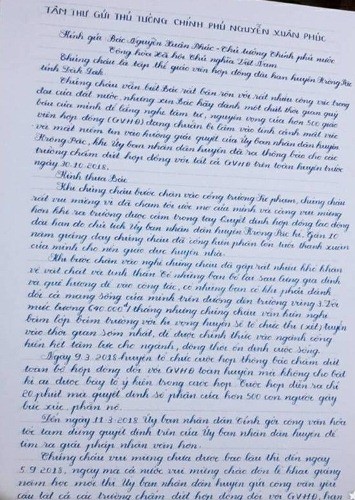 TÂM THƯ GỬI THỦ TƯỚNG CHÍNH PHỦ NGUYỄN XUÂN PHÚC
Kính gửi Bác Nguyễn Xuân Phúc - Thủ tướng Chính phủ nước
Cộng hòa Xã hội Chủ nghĩa Việt Nam
Chúng cháu là tập thể giáo viên hợp đồng dôi dư huyện Krông Pắc
tỉnh Đắk Lắk.
Chúng cháu vẫn biết Bác rất bận rộn với rất nhiều công việc trọng
đại của đất nước, nhưng xin Bác hãy dành một chút thời gian quý
báu của mình để lắng nghe tâm tư, nguyện vọng của hơn 500 giáo
viên hợp đồng (GVHĐ) đang chuẩn bị lâm vào tình cảnh mất việc
và mất niềm tin vào hướng giải quyết của Ủy ban nhân dân huyện
Krông Pắc, khi Ủy ban nhân dân huyện đã ra thông báo cho các
trường chấm dứt hợp đồng với tất cả GVHĐ trên toàn huyện trước
ngày 30.10.2018.
Kính thưa Bác
Khi chúng cháu bước chân vào cổng trường Sư phạm, chúng cháu
rất vui mừng vì đã chạm tới ước mơ của mình và càng vui mừng
hơn khi ra trường được cầm trong tay Quyết định hợp đồng lao động
do chủ tịch Ủy ban nhân dân huyện Krông Pắc kí. Gần 10
năm giảng dạy chúng cháu đã cống hiến phần lớn tuổi thanh xuân
của mình cho nền giáo dục huyện nhà.
Khi bước chân vào nghề chúng cháu đã gặp rất nhiều khó khăn
về vật chất và tinh thần. Có những bạn bỏ lại sau lưng gia đình
và quê hương để vào công tác, có những bạn có khi phải đánh
đổi cả mạng sống của mình trên đường đến trường vùng 3. Với
mức lương 00.000đ/tháng nhưng chúng cháu vẫn kiên nghị
bám lớp bám trường với hi vọng huyện sẽ tổ chức thi (xét) tuyển
vào thời gian sớm nhất, để được chính thức vào ngành cống
hiến hết tâm lực cho ngành, đồng thời ổn định cuộc sống.
Ngày 9.3.2018 huyện tổ chức cuộc họp thông báo chấm dứt
toàn bộ hợp đồng đối với GVHĐ toàn huyện mà không cho bất
kì ai được bày tỏ ý kiến trong cuộc họp. Cuộc họp diễn ra chỉ
20 phút mà quyết định số phận của hơn 500 con người gây
bức xúc, phẫn nộ.
Đến ngày 11.3.2018 Ủy ban nhân dân tỉnh gửi công văn hỏa
tốc tạm dừng quyết định trên của Ủy ban nhân dân huyện để
tìm ra giải pháp nhân văn hơn.
Chúng cháu vui mừng chưa được bao lâu thì đến ngày
5.9.2018, ngày mà cả nước vui mừng chào đón lễ khai giảng
năm học mới thì Ủy ban nhân dân huyện gửi công văn yêu
cầu tất cả các trường chấm dứt hợp đồng đối với GVHĐ